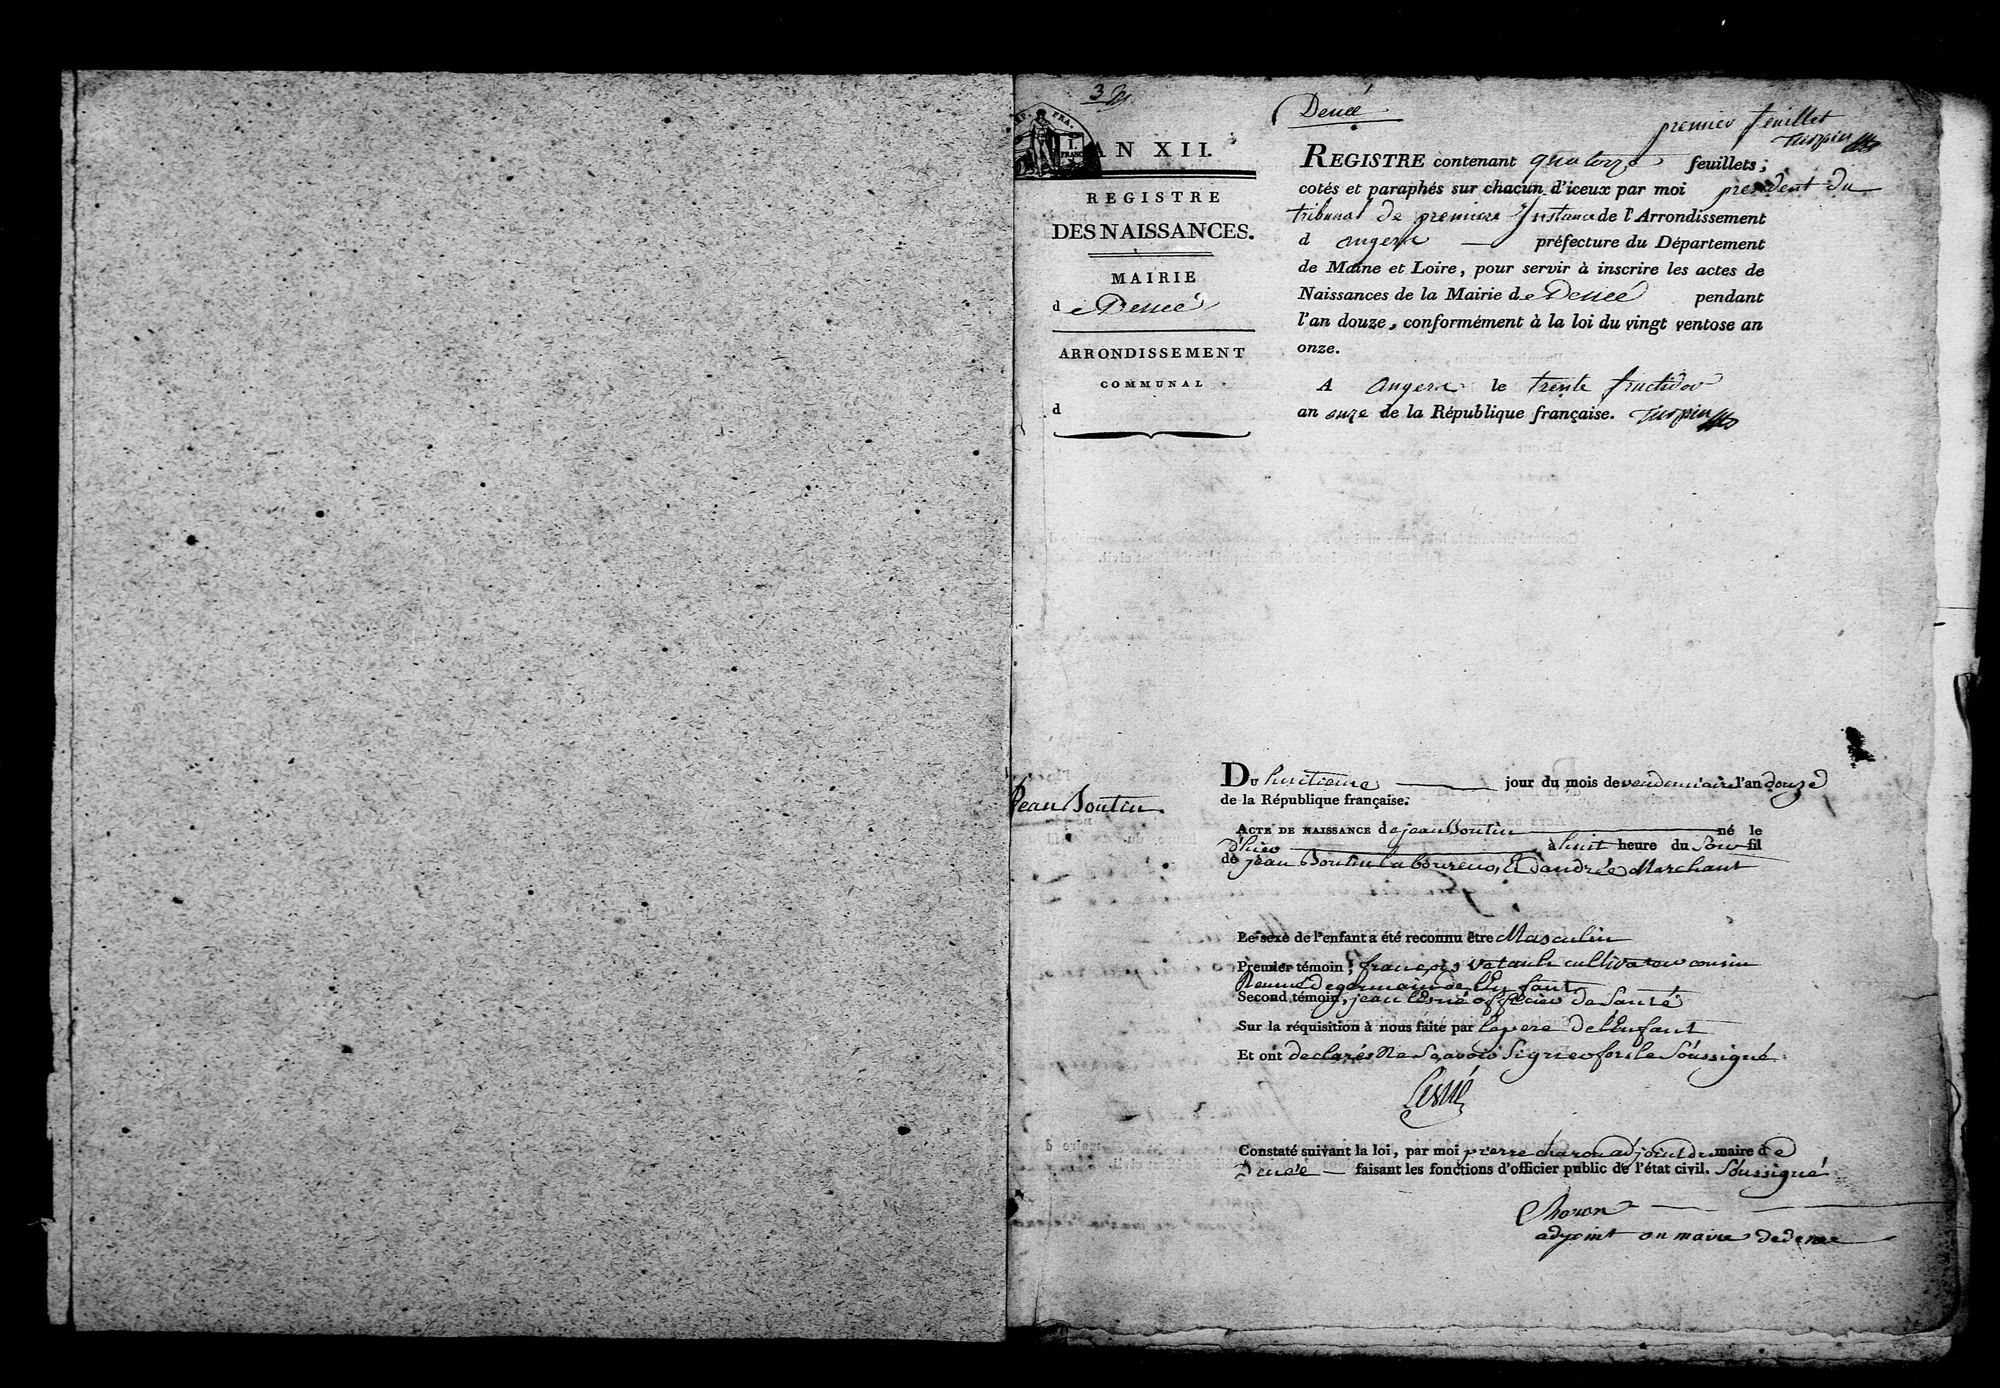 3
FRA.
1.
FRANC
AN XII.
REGISTRE
DES NAISSANCES.
MAIRIE
de Denée
ARRONDISSEMENT
COMMUNAL
d
Denée
premier feuillet
Turpin
REGISTRE contenant quatorze feuillets;
cotés et paraphés sur chacun d'iceux par moi président du
tribunal de premiere Instance de l'Arrondissement
d angers préfecture du Département
de Maine et Loire, pour servir à inscrire les actes de
Naissances de la Mairie de Denée pendant
l'an douze, conformément à la loi du vingt ventose an
onze.
A angers le trente fructidor
an onze de la République française. Turpin
Jean Boutin
Du huitieme jour du mois de vendemiaire l'an douze
de la République française.
ACTE DE NAISSANCE de jean Boutin né le
d'hier à huit heure du Soir fil
de jean Boutin laboureur, Et d'andrée Marchant
Le sexe de l'enfant a été reconnu être Masculin
Premier témoin, françois vetault cultivateur cousin
germain de l'Enfant
Second témoin, jean Lesné officier de Santé
Sur la réquisition à nous faite par le pere de l'Enfant
Et ont declarés Ne Sçavoir Signer fors le Soussigné
Lesné
Constaté suivant la loi, par moi pierre charon adjoint du maire de
Denée faisant les fonctions d'officier public de l'état civil. Soussigné
Charon
adjoint au maire de denée